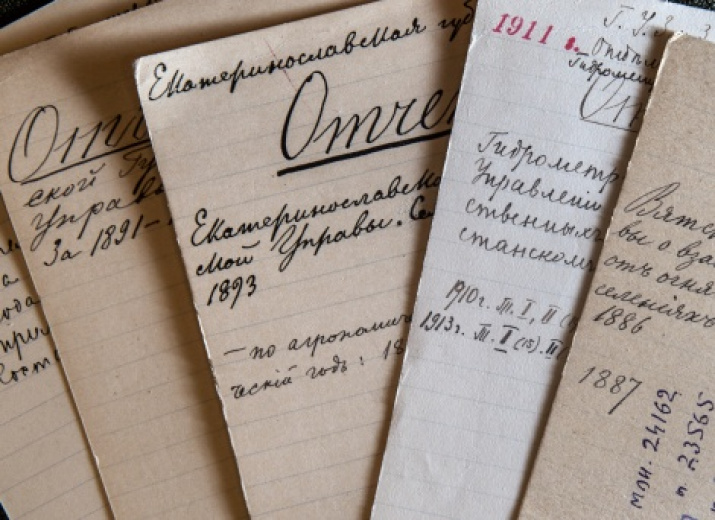 Отч
ской Гу
Управ
За 1891–
Екатеринославская губ
Отче
Екатеринославско
мой Управы. Се
1893
— по агрономич
ческій годъ: 18
1911 г.
Г. У. З. З
Отдѣл
Гидромет
От
Гидрометр
Управленіи
ственныхъ
станском
1910 г. III. I, II (
1913 г. III. I (15). II
Вятск
вы о вза
отъ огня
селеніяхъ
1886
1887
мон. 24162
п. 23565
а
ода
при
Кост